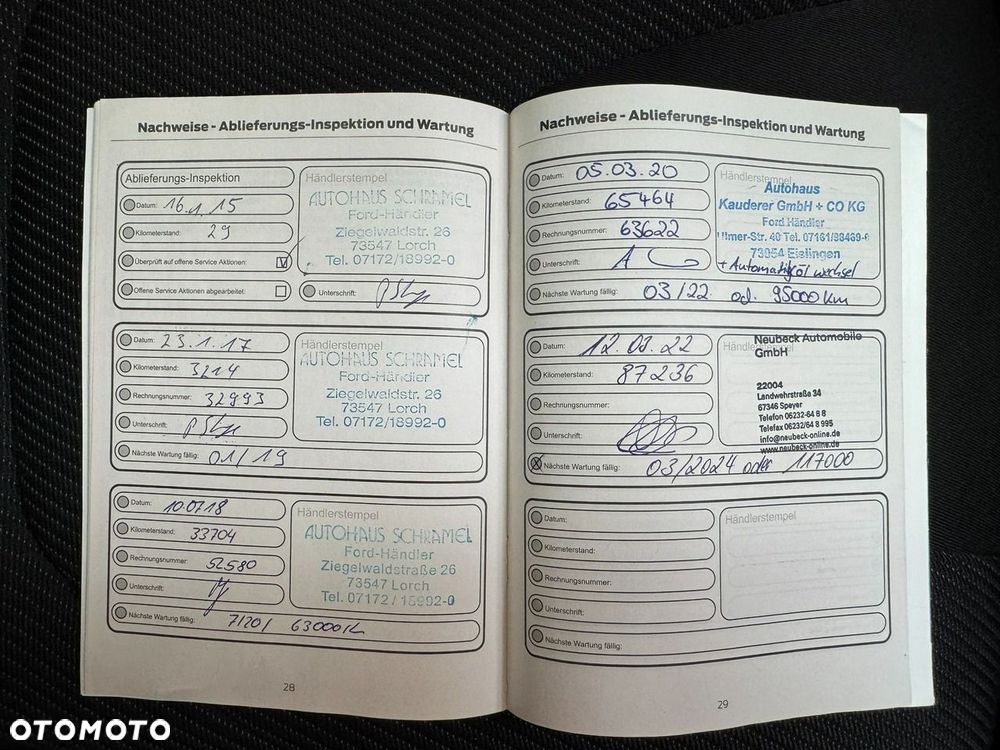 Nachweise - Ablieferungs-Inspektion und Wartung
Ablieferungs-Inspektion
Datum: 16.1.15
Kilometerstand: 29
Überprüft auf offene Service Aktionen:
Offene Service Aktionen abgearbeitet:
Händlerstempel
AUTOHAUS SCHRAMEL
Ford-Händler
Ziegelwaldstr. 26
73547 Lorch
Tel. 07172/18992-0
Unterschrift:
Datum: 23.1.17
Kilometerstand: 3214
Rechnungsnummer: 32993
Unterschrift:
Nächste Wartung fällig: 01/19
Händlerstempel
AUTOHAUS SCHRAMEL
Ford-Händler
Ziegelwaldstr. 26
73547 Lorch
Tel. 07172/18992-0
Datum: 10.07.18
Kilometerstand: 33704
Rechnungsnummer: 52580
Unterschrift:
Nächste Wartung fällig: 7/20/ 63000
Händlerstempel
AUTOHAUS SCHRAMEL
Ford-Händler
Ziegelwaldstraße 26
73547 Lorch
Tel. 07172/18992-0
28
Nachweise - Ablieferungs-Inspektion und Wartung
Datum: 05.03.20
Kilometerstand: 65464
Rechnungsnummer: 63622
Unterschrift:
Nächste Wartung fällig: 03/22 od. 95000 km
Händlerstempel
Autohaus
Kauderer GmbH + CO KG
Ford Händler
Ulmer-Str. 40 Tel. 07161/98469-0
73054 Eislingen
+ Automatiköl wechsel
Datum: 12.03.22
Kilometerstand: 87236
Rechnungsnummer:
Unterschrift:
Nächste Wartung fällig: 03/2024 oder 117000
Händlerstempel
Neubeck Automobile
GmbH
22004
Landwehrstraße 34
67346 Speyer
Telefon 06232-64 8 8
Telefax 06232/64 8 995
info@neubeck-online.de
www.neubeck-online.de
Datum:
Kilometerstand:
Rechnungsnummer:
Unterschrift:
Nächste Wartung fällig:
Händlerstempel
29
OTOMOTO